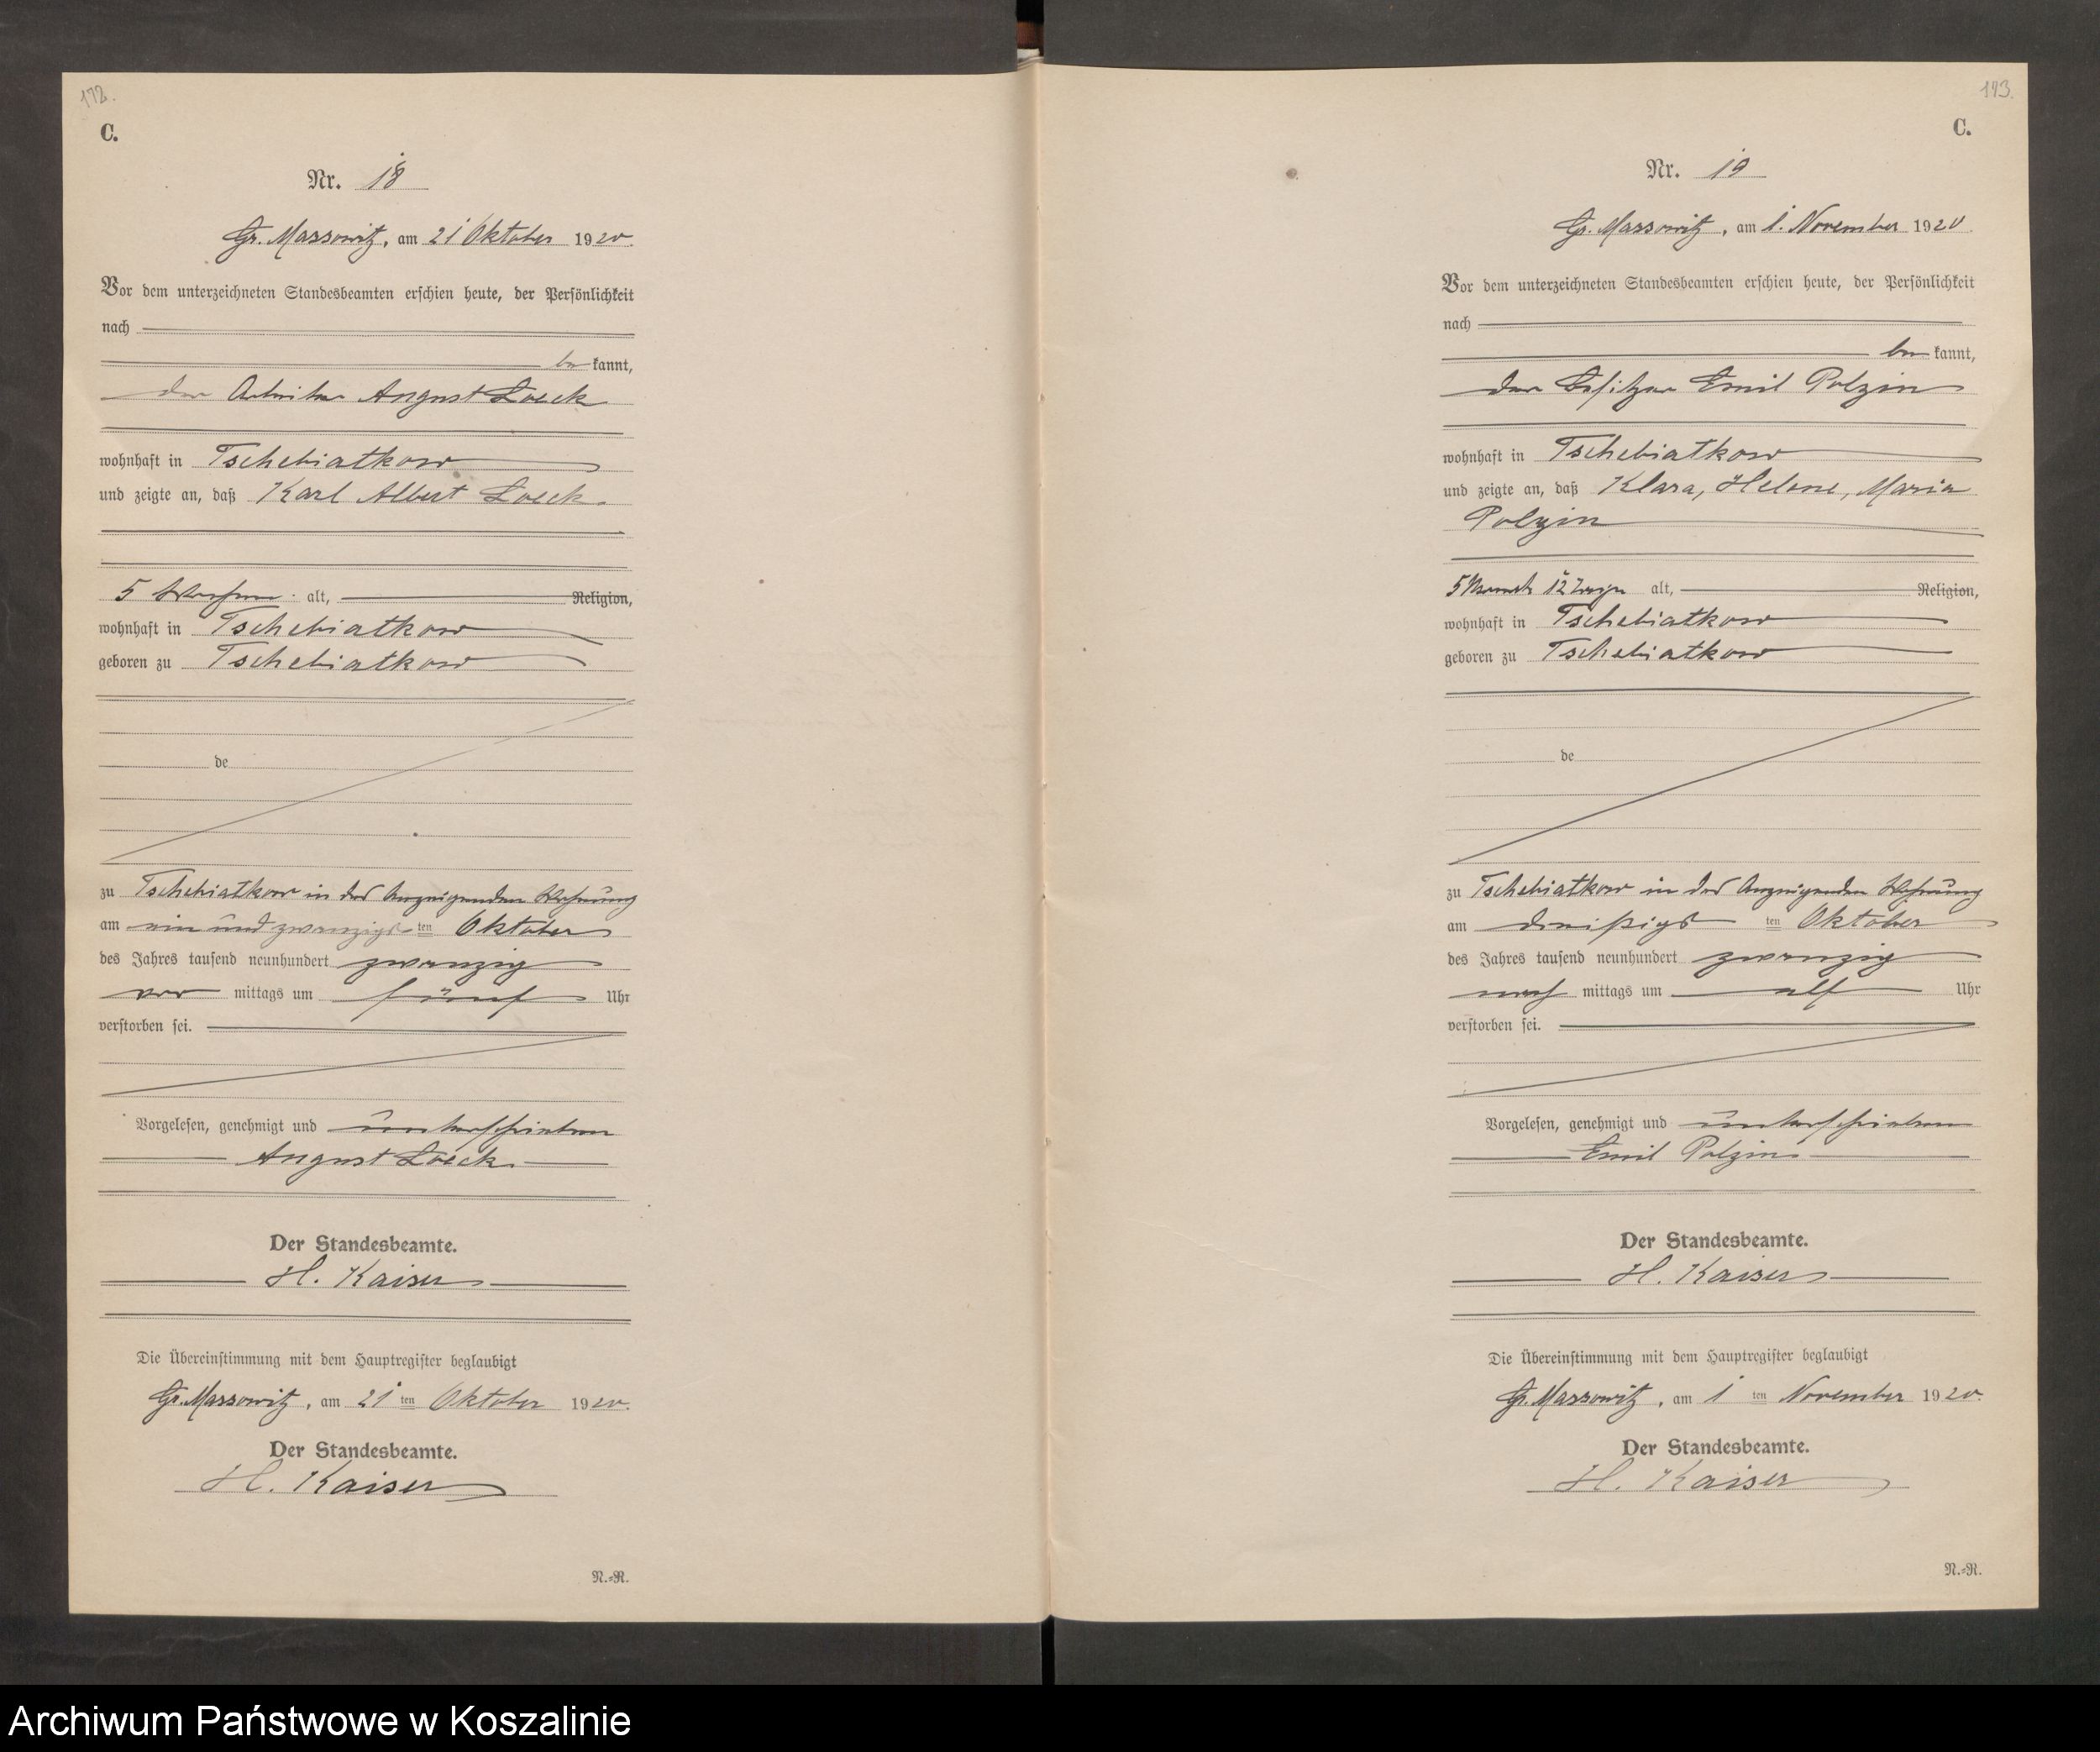 172.
C.
Nr. 18
Gr. Massowitz, am 21 Oktober 1920.
Vor dem unterzeichneten Standesbeamten erschien heute, der Persönlichkeit
nach
be kannt,
der Arbeiter August Loeck
wohnhaft in Tschebiatkow
und zeigte an, daß Karl Albert Loeck
5 Wochen alt, Religion,
wohnhaft in Tschebiatkow
geboren zu Tschebiatkow
de
zu Tschebiatkow in des Anzeigenden Wohnung
am ein und zwanzigs ten Oktober
des Jahres tausend neunhundert zwanzig
vor mittags um fünf Uhr
verstorben sei.
Vorgelesen, genehmigt und unterschrieben
August Loeck
Der Standesbeamte.
H. Kaiser
Die Übereinstimmung mit dem Hauptregister beglaubigt
Gr. Massowitz, am 21 ten Oktober 1920.
Der Standesbeamte.
H. Kaiser
N.=R.
173.
C.
Nr. 19
Gr. Massowitz, am 1. November 1920.
Vor dem unterzeichneten Standesbeamten erschien heute, der Persönlichkeit
nach
be kannt,
der Besitzer Emil Polzin
wohnhaft in Tschebiatkow
und zeigte an, daß Klara, Helene, Maria
Polzin
5 Monate 12 Tage alt, Religion,
wohnhaft in Tschebiatkow
geboren zu Tschebiatkow
de
zu Tschebiatkow in des Anzeigenden Wohnung
am dreißigs ten Oktober
des Jahres tausend neunhundert zwanzig
nach mittags um elf Uhr
verstorben sei.
Vorgelesen, genehmigt und unterschrieben
Emil Polzin
Der Standesbeamte.
H. Kaiser
Die Übereinstimmung mit dem Hauptregister beglaubigt
Gr. Massowitz, am 1 ten November 1920.
Der Standesbeamte.
H. Kaiser
N.=R.
Archiwum Państwowe w Koszalinie